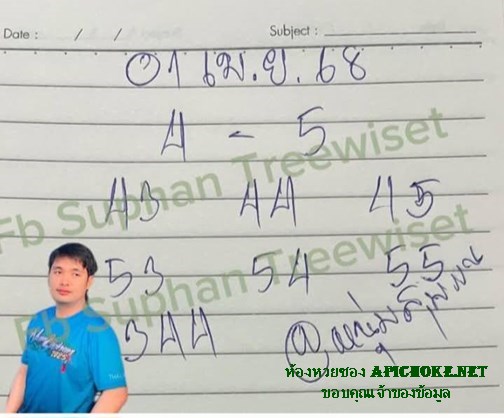 Date : / / Subject :
01 เม.ย. 68
4 - 5
43 44 45
Fb Suphan Treewiset
53 54 55
Fb Suphan Treewiset
344
ห้องหวยซอง APICHOKE.NET
ขอบคุณเจ้าของข้อมูล